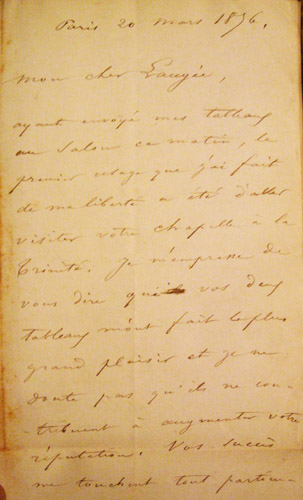 Paris 20 mars 1876.
Mon cher Laugée,
ayant envoyé mes tableaux
au Salon ce matin, le
premier usage que j'ai fait
de ma liberté a été d'aller
visiter votre chapelle à la
Trinité. Je m'empresse de
vous dire que vos deux
tableaux m'ont fait le plus
grand plaisir et je ne
doute pas qu'ils ne con-
tribuent à augmenter votre
réputation. Vos succès
me touchent tout particu-